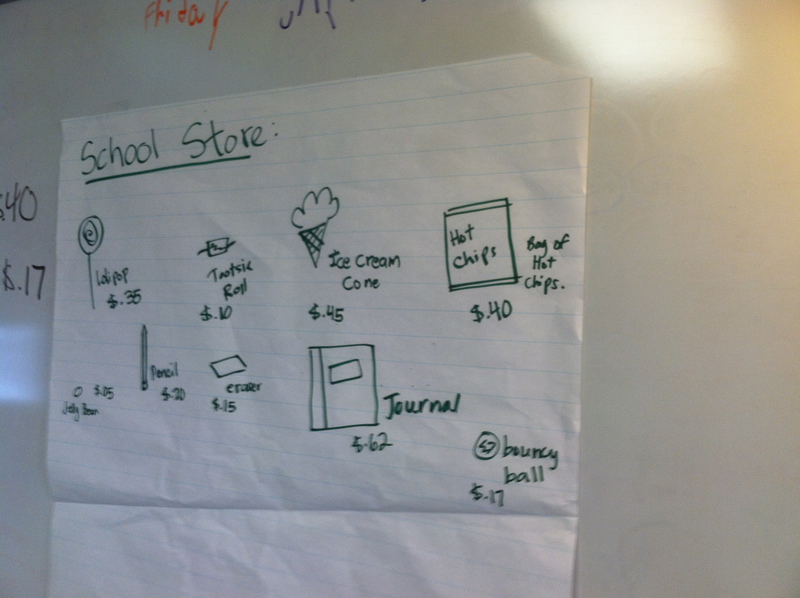 Friday
School Store:
$.40
$.17
Lolipop
$.35
Tootsie
Roll
$.10
Ice Cream
Cone
$.45
Hot
Chips
Bag of
Hot
Chips.
$.40
$.05
Jelly Bean
Pencil
$.20
eraser
$.15
Journal
$.62
bouncy
ball
$.17